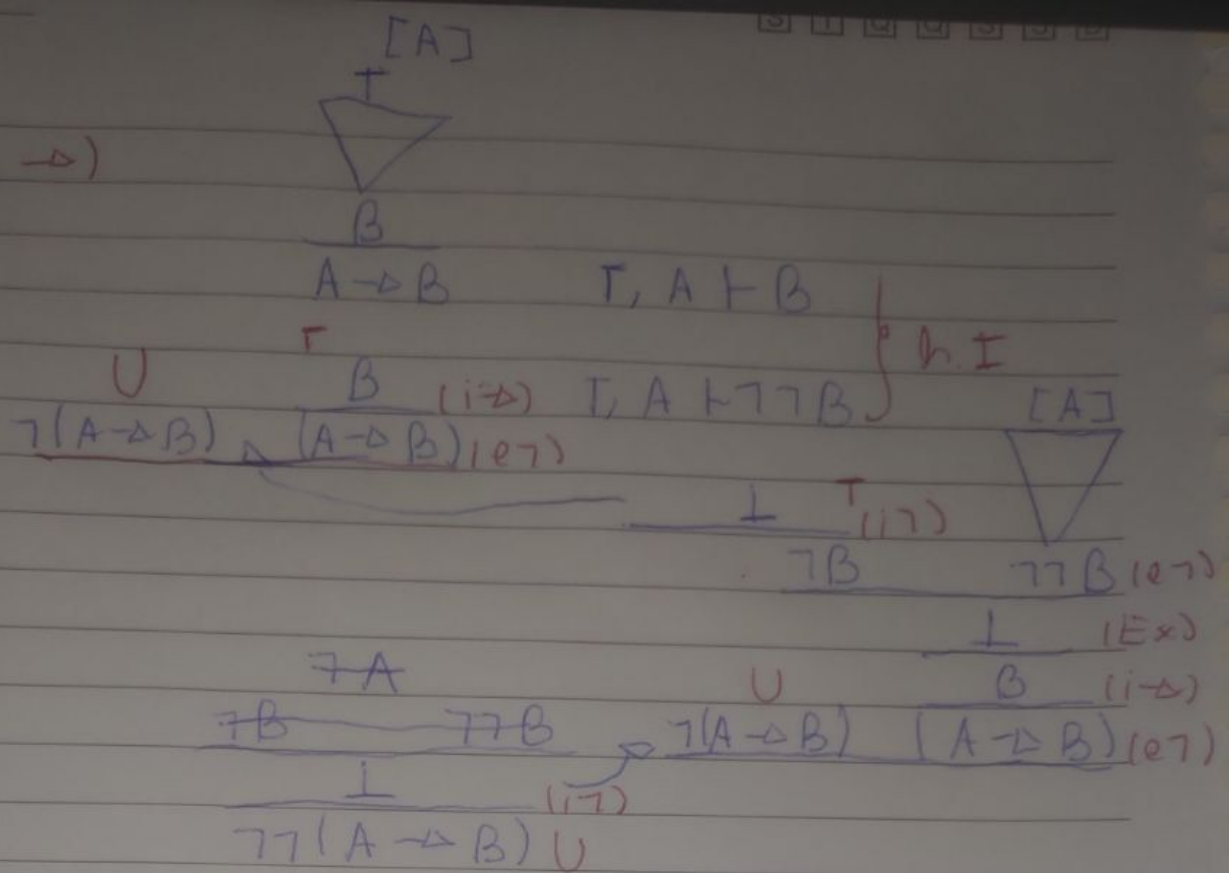 [A]
T
→)
B
A → B    Γ, A ⊢ B
Γ    h. I
U    B    (i→)    Γ, A ⊢ ¬¬B    [A]
¬(A → B)    (A → B) (e¬)
⊥    T (i¬)
¬B    ¬¬B (e¬)
⊥    (Ex)
¬A    U    B    (i→)
¬B    ¬¬B    ¬(A → B)    (A → B) (e¬)
⊥    (i¬)
¬¬(A → B) U